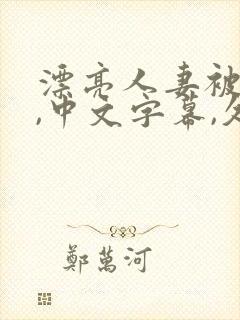 漂亮人妻被
,中文字幕,久
鄭萬河